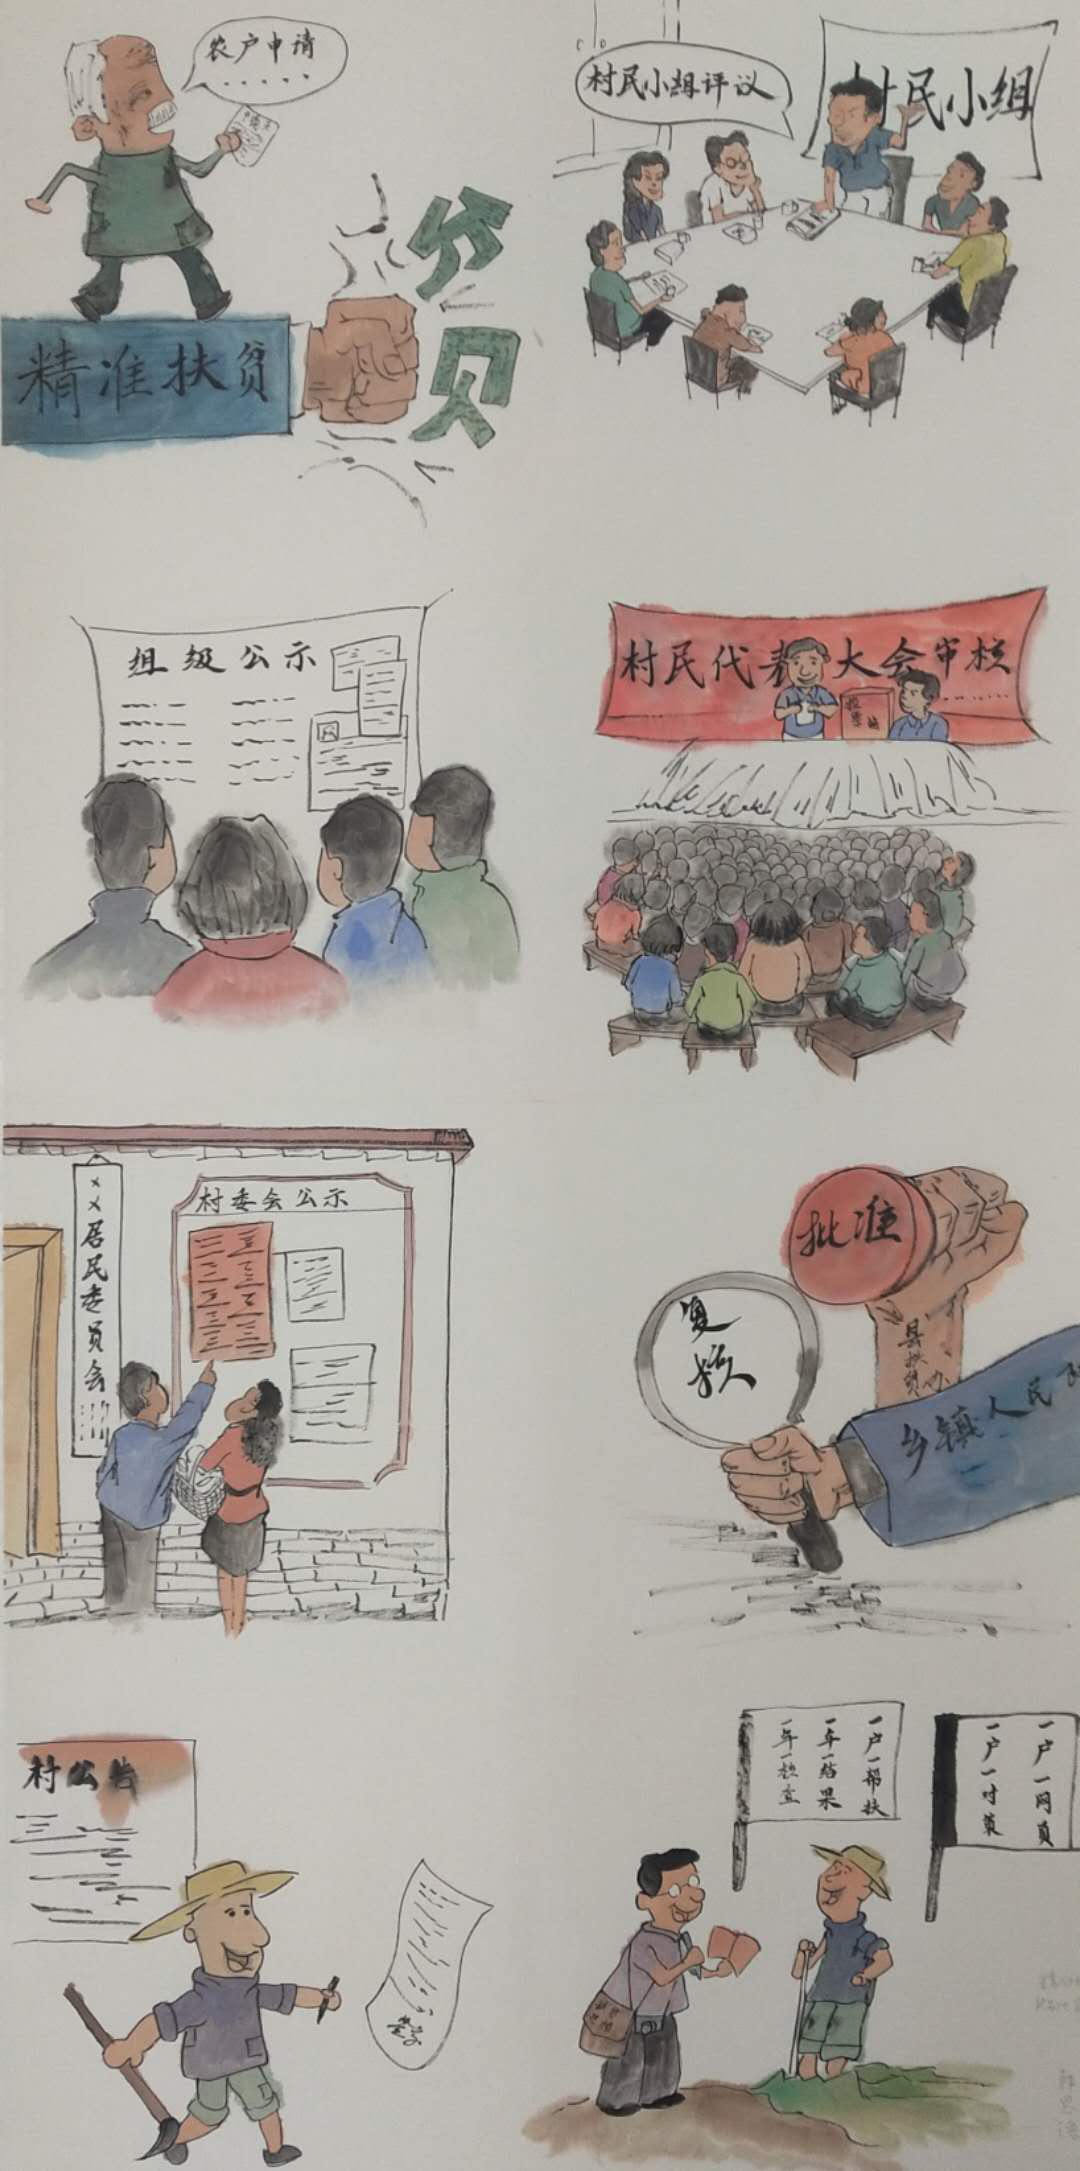 农户申请
.....
精准扶贫
贫
村民小组评议
村民小组
组级公示
村民代表大会审核
投票站
××居民委员会
村委会公示
批准
复核
县扶贫办
乡镇人民
村公告
签字
一户一帮扶
一年一结果
一年一核查
一户一网页
一户一对策